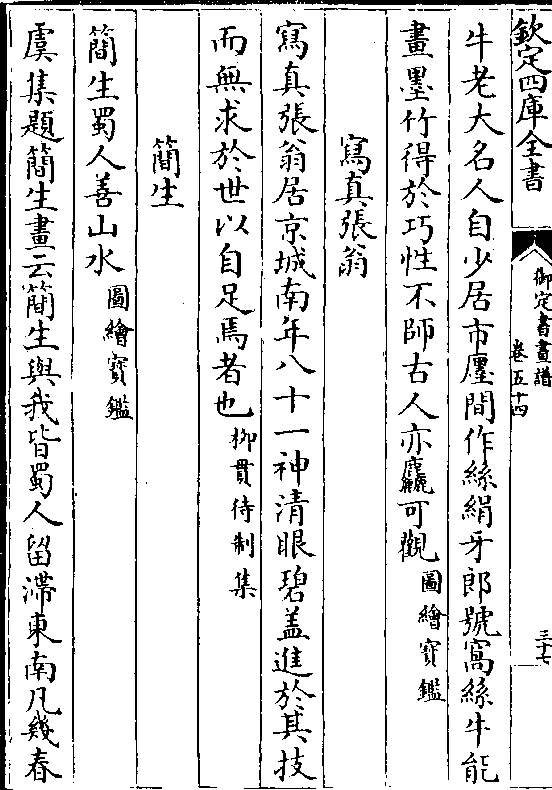 欽定四庫全書
御定書畫譜
卷五十四
三十七
牛老大名人自少居市廛間作絲絹牙郎號窩絲牛能
畫墨竹得於巧性不師古人亦麤可觀圖繪寶鑑
寫真張翁
寫真張翁居京城南年八十一神清眼碧盖進於其技
而無求於世以自足焉者也柳貫待制集
簡生
簡生蜀人善山水圖繪寶鑑
虞集題簡生畫云簡生與我皆蜀人留滯東南凡幾春